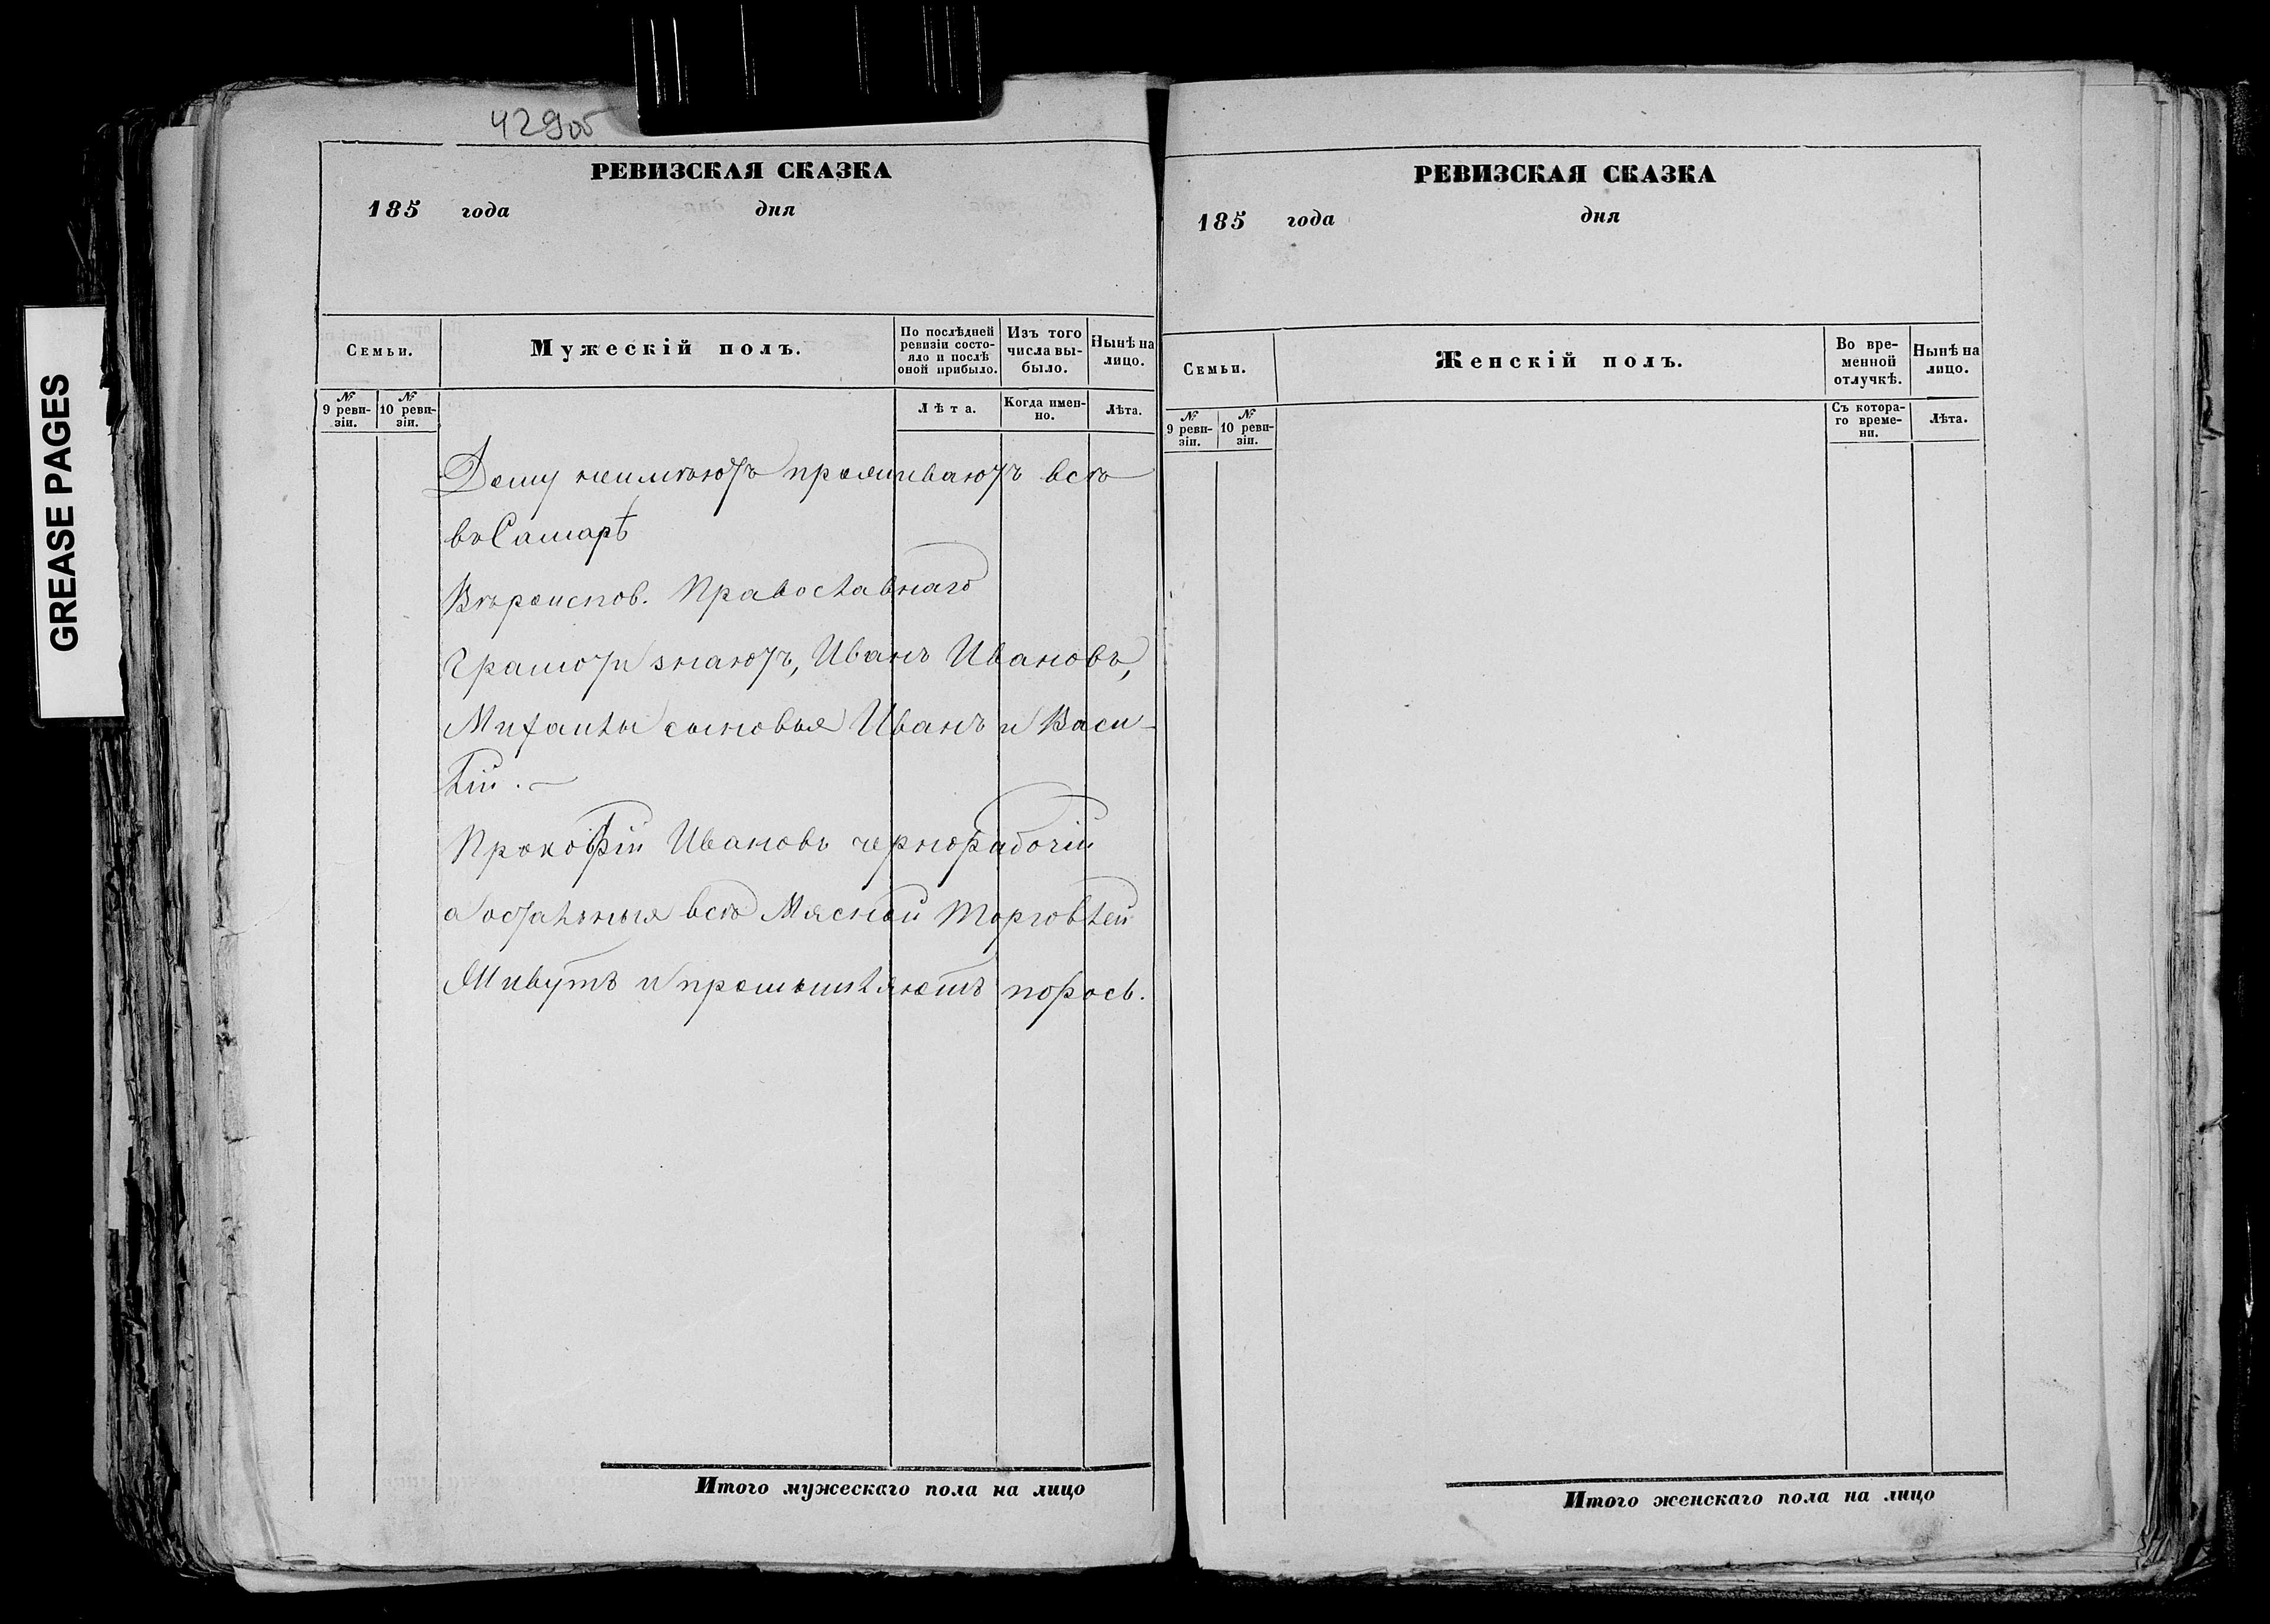 429об
РЕВИЗСКАЯ СКАЗКА
185 года дня
Семьи.
Мужескій полъ.
По послѣдней
ревизіи состо-
яло и послѣ
оной прибыло.
Изъ того
числа вы-
было.
Нынѣ на
лицо.
№
9 реви-
зіи.
№
10 реви-
зіи.
Лѣта.
Когда имен-
но.
Лѣта.
Дому неимѣютъ проживаютъ всѣ
въ Самарѣ
Вѣроиспов. Православнаго
Грамоти знаютъ, Иванъ Ивановъ,
Михаилы сыновья Иванъ и Васи-
лій. —
Прокофій Ивановъ чернорабочій
а остальныя всѣ Мясной торговлей
Живутъ и промышляютъ порось.
Итого мужескаго пола на лицо
РЕВИЗСКАЯ СКАЗКА
185 года дня
Семьи.
Женскій полъ.
Во вре-
менной
отлучкѣ.
Нынѣ на
лицо.
№
9 реви-
зіи.
№
10 реви-
зіи.
Съ котора-
го време-
ни.
Лѣта.
Итого женскаго пола на лицо
GREASE PAGES